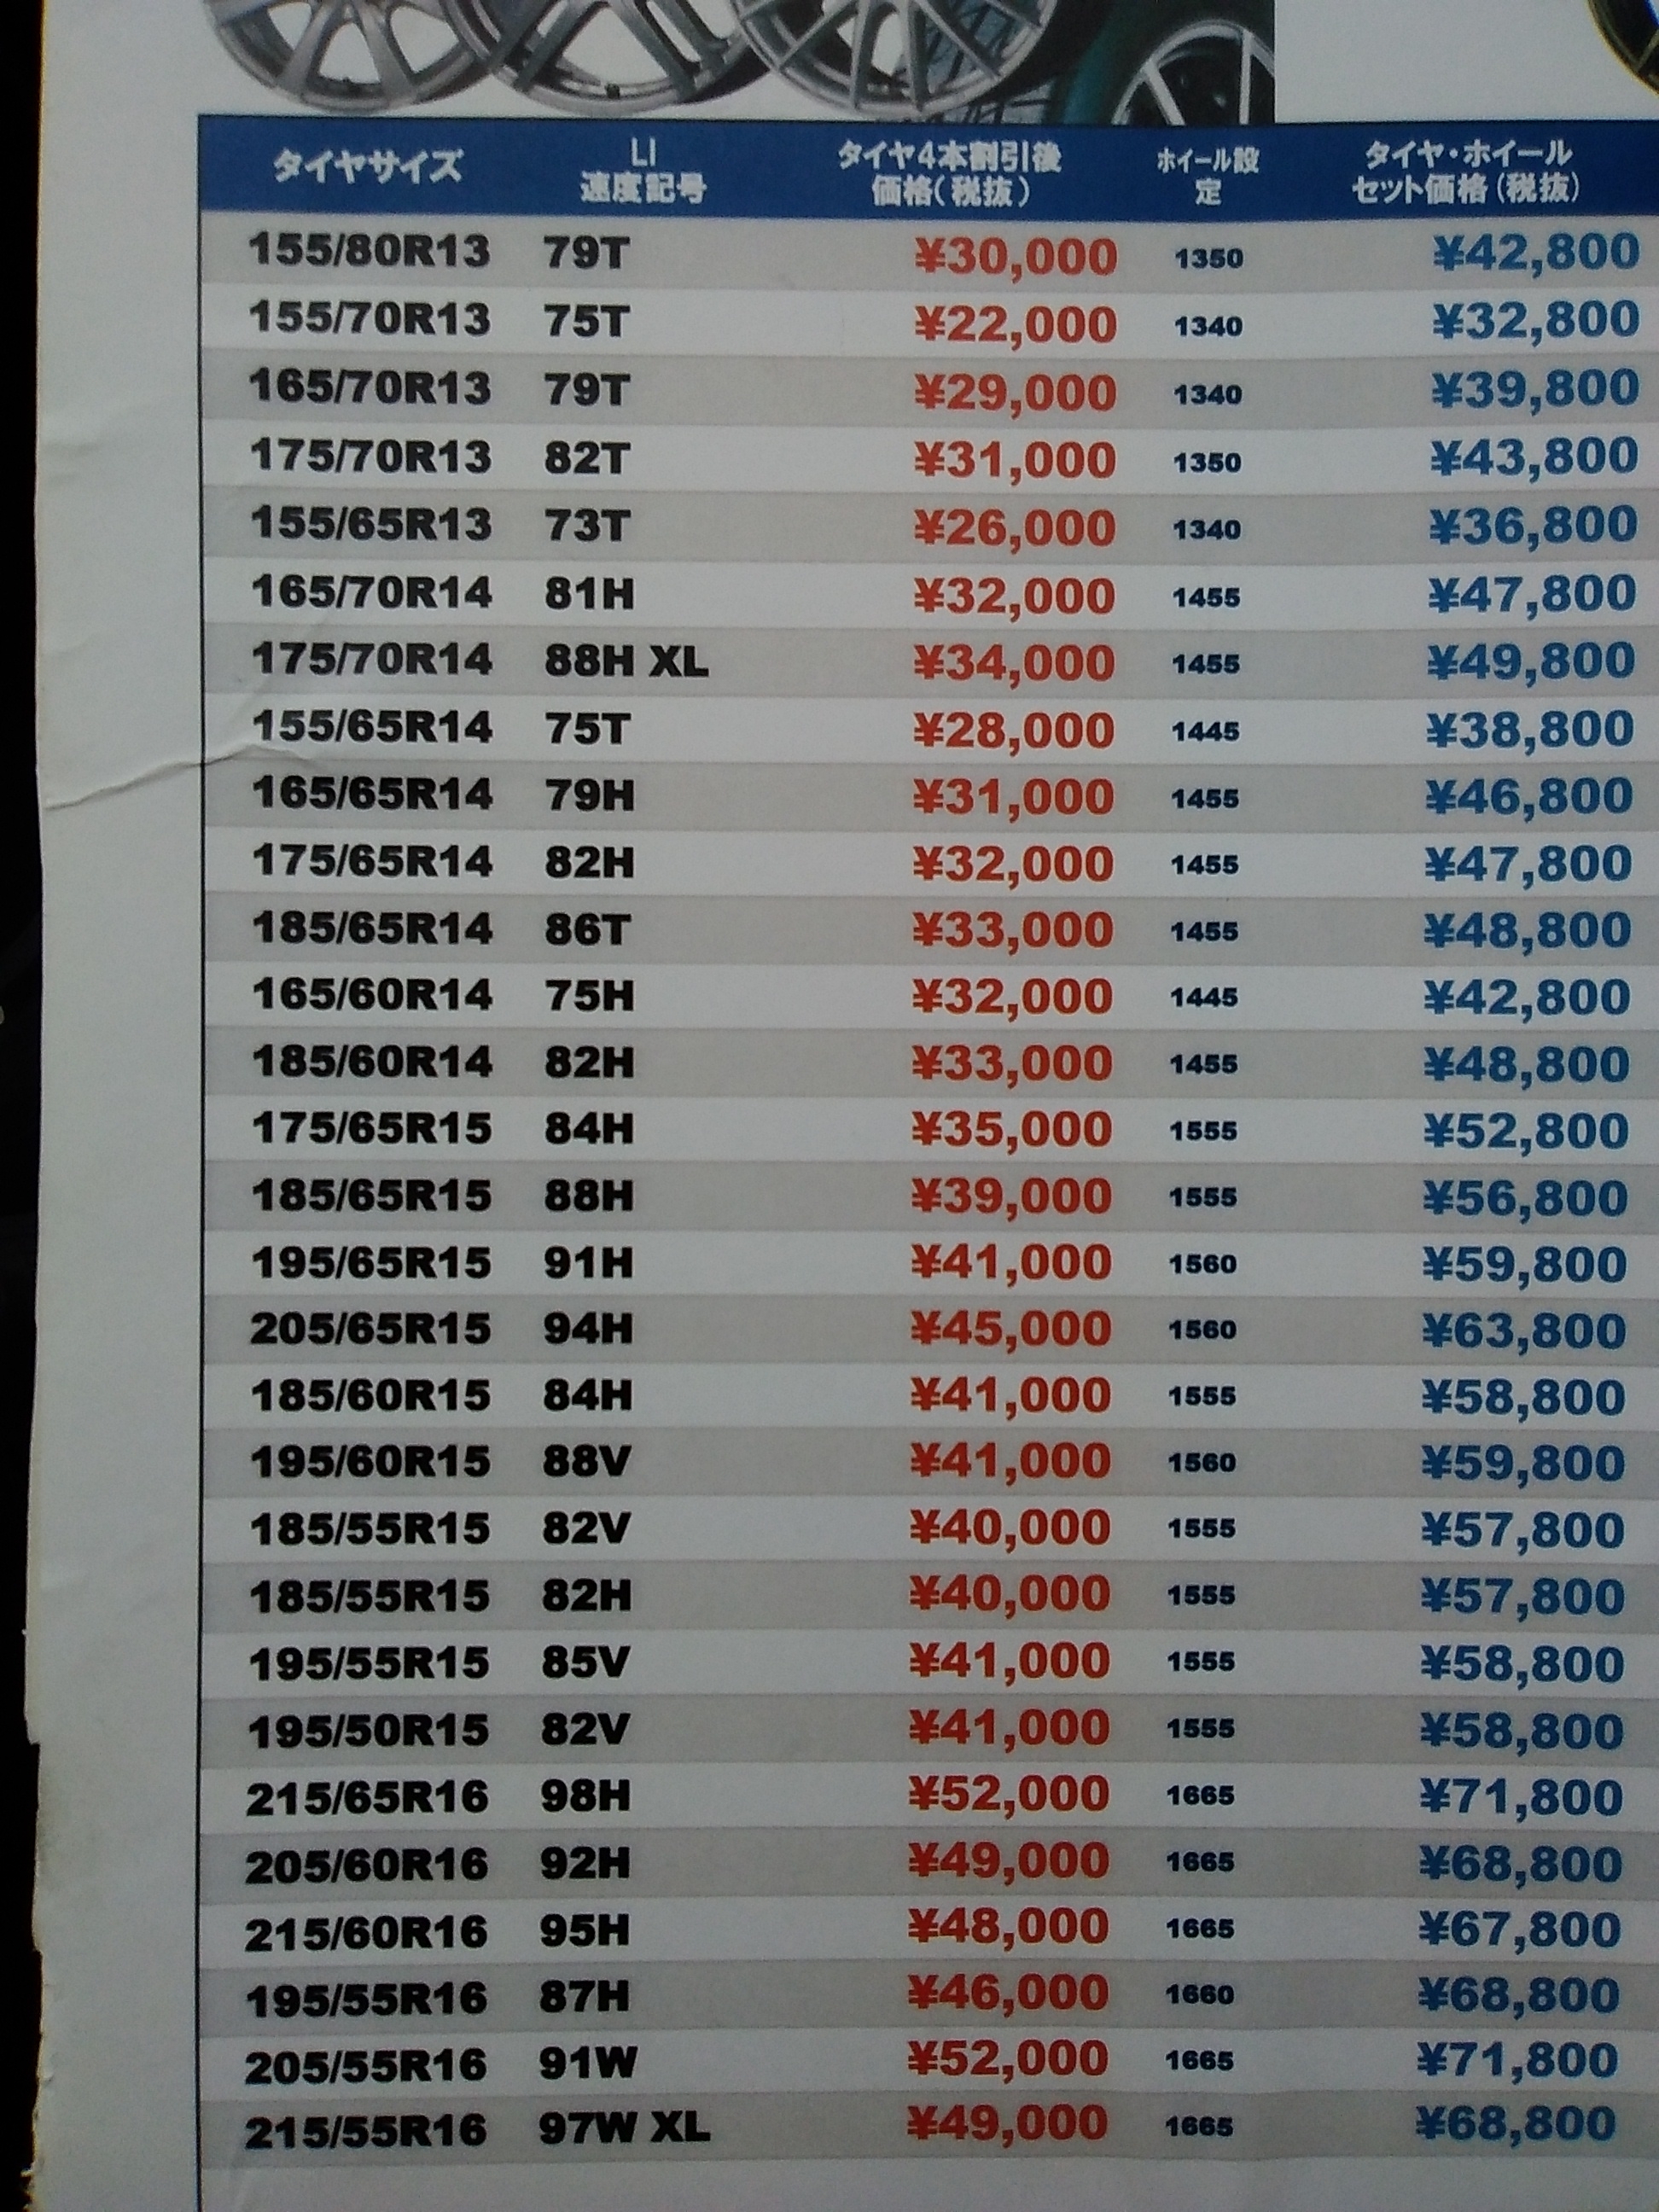 タイヤサイズ LI 速度記号 タイヤ4本割引後 価格(税抜) ホイール設定 タイヤ・ホイール セット価格(税抜)
155/80R13 79T ¥30,000 1350 ¥42,800
155/70R13 75T ¥22,000 1340 ¥32,800
165/70R13 79T ¥29,000 1340 ¥39,800
175/70R13 82T ¥31,000 1350 ¥43,800
155/65R13 73T ¥26,000 1340 ¥36,800
165/70R14 81H ¥32,000 1455 ¥47,800
175/70R14 88H XL ¥34,000 1455 ¥49,800
155/65R14 75T ¥28,000 1445 ¥38,800
165/65R14 79H ¥31,000 1455 ¥46,800
175/65R14 82H ¥32,000 1455 ¥47,800
185/65R14 86T ¥33,000 1455 ¥48,800
165/60R14 75H ¥32,000 1445 ¥42,800
185/60R14 82H ¥33,000 1455 ¥48,800
175/65R15 84H ¥35,000 1555 ¥52,800
185/65R15 88H ¥39,000 1555 ¥56,800
195/65R15 91H ¥41,000 1560 ¥59,800
205/65R15 94H ¥45,000 1560 ¥63,800
185/60R15 84H ¥41,000 1555 ¥58,800
195/60R15 88V ¥41,000 1560 ¥59,800
185/55R15 82V ¥40,000 1555 ¥57,800
185/55R15 82H ¥40,000 1555 ¥57,800
195/55R15 85V ¥41,000 1555 ¥58,800
195/50R15 82V ¥41,000 1555 ¥58,800
215/65R16 98H ¥52,000 1665 ¥71,800
205/60R16 92H ¥49,000 1665 ¥68,800
215/60R16 95H ¥48,000 1665 ¥67,800
195/55R16 87H ¥46,000 1660 ¥68,800
205/55R16 91W ¥52,000 1665 ¥71,800
215/55R16 97W XL ¥49,000 1665 ¥68,800